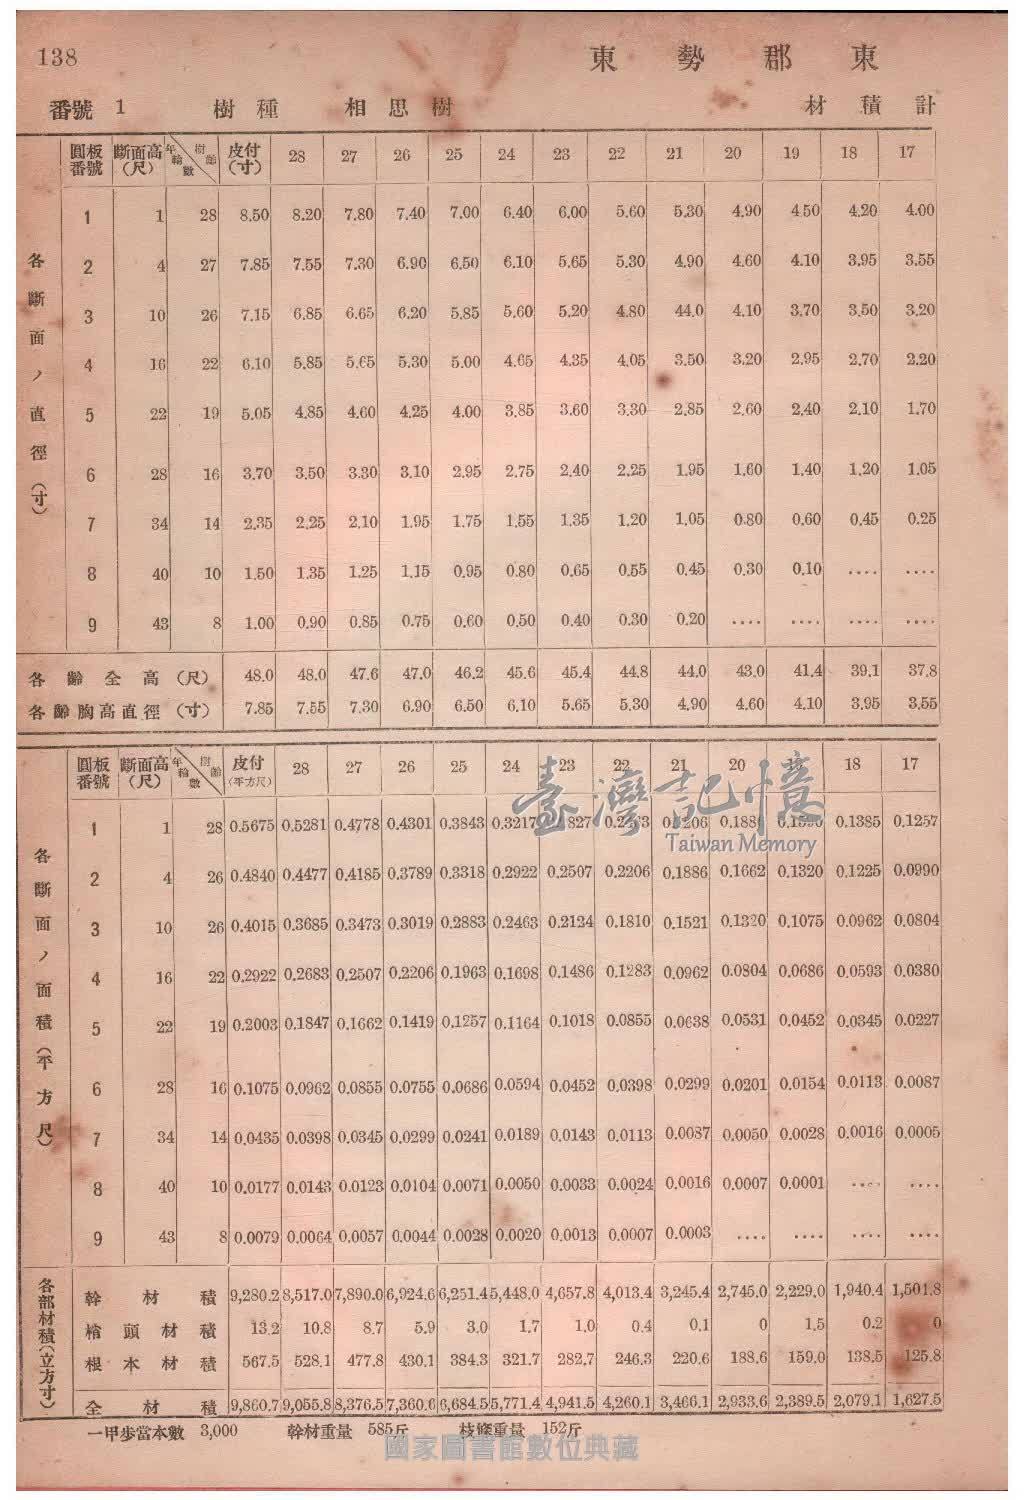 138 東勢郡東
番號 1 樹種 相思樹 材積計
圓板番號 斷面高(尺) 年輪數 樹齡 皮付(寸) 28 27 26 25 24 23 22 21 20 19 18 17
各斷面ノ直徑(寸)
1 1 28 8.50 8.20 7.80 7.40 7.00 6.40 6.00 5.60 5.30 4.90 4.50 4.20 4.00
2 4 27 7.85 7.55 7.30 6.90 6.50 6.10 5.65 5.30 4.90 4.60 4.10 3.95 3.55
3 10 26 7.15 6.85 6.65 6.20 5.85 5.60 5.20 4.80 44.0 4.10 3.70 3.50 3.20
4 16 22 6.10 5.85 5.65 5.30 5.00 4.65 4.35 4.05 3.50 3.20 2.95 2.70 2.20
5 22 19 5.05 4.85 4.60 4.25 4.00 3.85 3.60 3.30 2.85 2.60 2.40 2.10 1.70
6 28 16 3.70 3.50 3.30 3.10 2.95 2.75 2.40 2.25 1.95 1.60 1.40 1.20 1.05
7 34 14 2.35 2.25 2.10 1.95 1.75 1.55 1.35 1.20 1.05 0.80 0.60 0.45 0.25
8 40 10 1.50 1.35 1.25 1.15 0.95 0.80 0.65 0.55 0.45 0.30 0.10 .... ....
9 43 8 1.00 0.90 0.85 0.75 0.60 0.50 0.40 0.30 0.20 .... .... .... ....
各齡全高(尺) 48.0 48.0 47.6 47.0 46.2 45.6 45.4 44.8 44.0 43.0 41.4 39.1 37.8
各齡胸高直徑(寸) 7.85 7.55 7.30 6.90 6.50 6.10 5.65 5.30 4.90 4.60 4.10 3.95 3.55
圓板番號 斷面高(尺) 年輪數 樹齡 皮付(平方尺) 28 27 26 25 24 23 22 21 20 19 18 17
各斷面ノ面積(平方尺)
1 1 28 0.5675 0.5281 0.4778 0.4301 0.3843 0.3217 0.1385 0.1257
2 4 26 0.4840 0.4477 0.4185 0.3789 0.3318 0.2922 0.2507 0.2206 0.1886 0.1662 0.1320 0.1225 0.0990
3 10 26 0.4015 0.3685 0.3473 0.3019 0.2883 0.2463 0.2124 0.1810 0.1521 0.1320 0.1075 0.0962 0.0804
4 16 22 0.2922 0.2683 0.2507 0.2206 0.1963 0.1698 0.1486 0.1283 0.0962 0.0804 0.0686 0.0593 0.0380
5 22 19 0.2003 0.1847 0.1662 0.1419 0.1257 0.1164 0.1018 0.0855 0.0638 0.0531 0.0452 0.0345 0.0227
6 28 16 0.1075 0.0962 0.0855 0.0755 0.0686 0.0594 0.0452 0.0398 0.0299 0.0201 0.0154 0.0113 0.0087
7 34 14 0.0435 0.0398 0.0345 0.0299 0.0241 0.0189 0.0143 0.0113 0.0087 0.0050 0.0028 0.0016 0.0005
8 40 10 0.0177 0.0143 0.0123 0.0104 0.0071 0.0050 0.0033 0.0024 0.0016 0.0007 0.0001 .... ....
9 43 8 0.0079 0.0064 0.0057 0.0044 0.0028 0.0020 0.0013 0.0007 0.0003 .... .... .... ....
各部材積(立方寸)
幹材積 9,280.2 8,517.0 7,890.0 6,924.6 6,251.4 5,448.0 4,657.8 4,013.4 3,245.4 2,745.0 2,229.0 1,940.4 1,501.8
梢頭材積 13.2 10.8 8.7 5.9 3.0 1.7 1.0 0.4 0.1 0 1.5 0.2 0
根本材積 567.5 528.1 477.8 430.1 384.3 321.7 282.7 246.3 220.6 188.6 159.0 138.5 125.8
全材積 9,860.7 9,055.8 8,376.5 7,360.6 6,684.5 5,771.4 4,941.5 4,260.1 3,466.1 2,933.6 2,389.5 2,079.1 1,627.5
一甲步當本數 3,000 幹材重量 585斤 枝條重量 152斤
臺灣記憶
Taiwan Memory
國家圖書館數位典藏